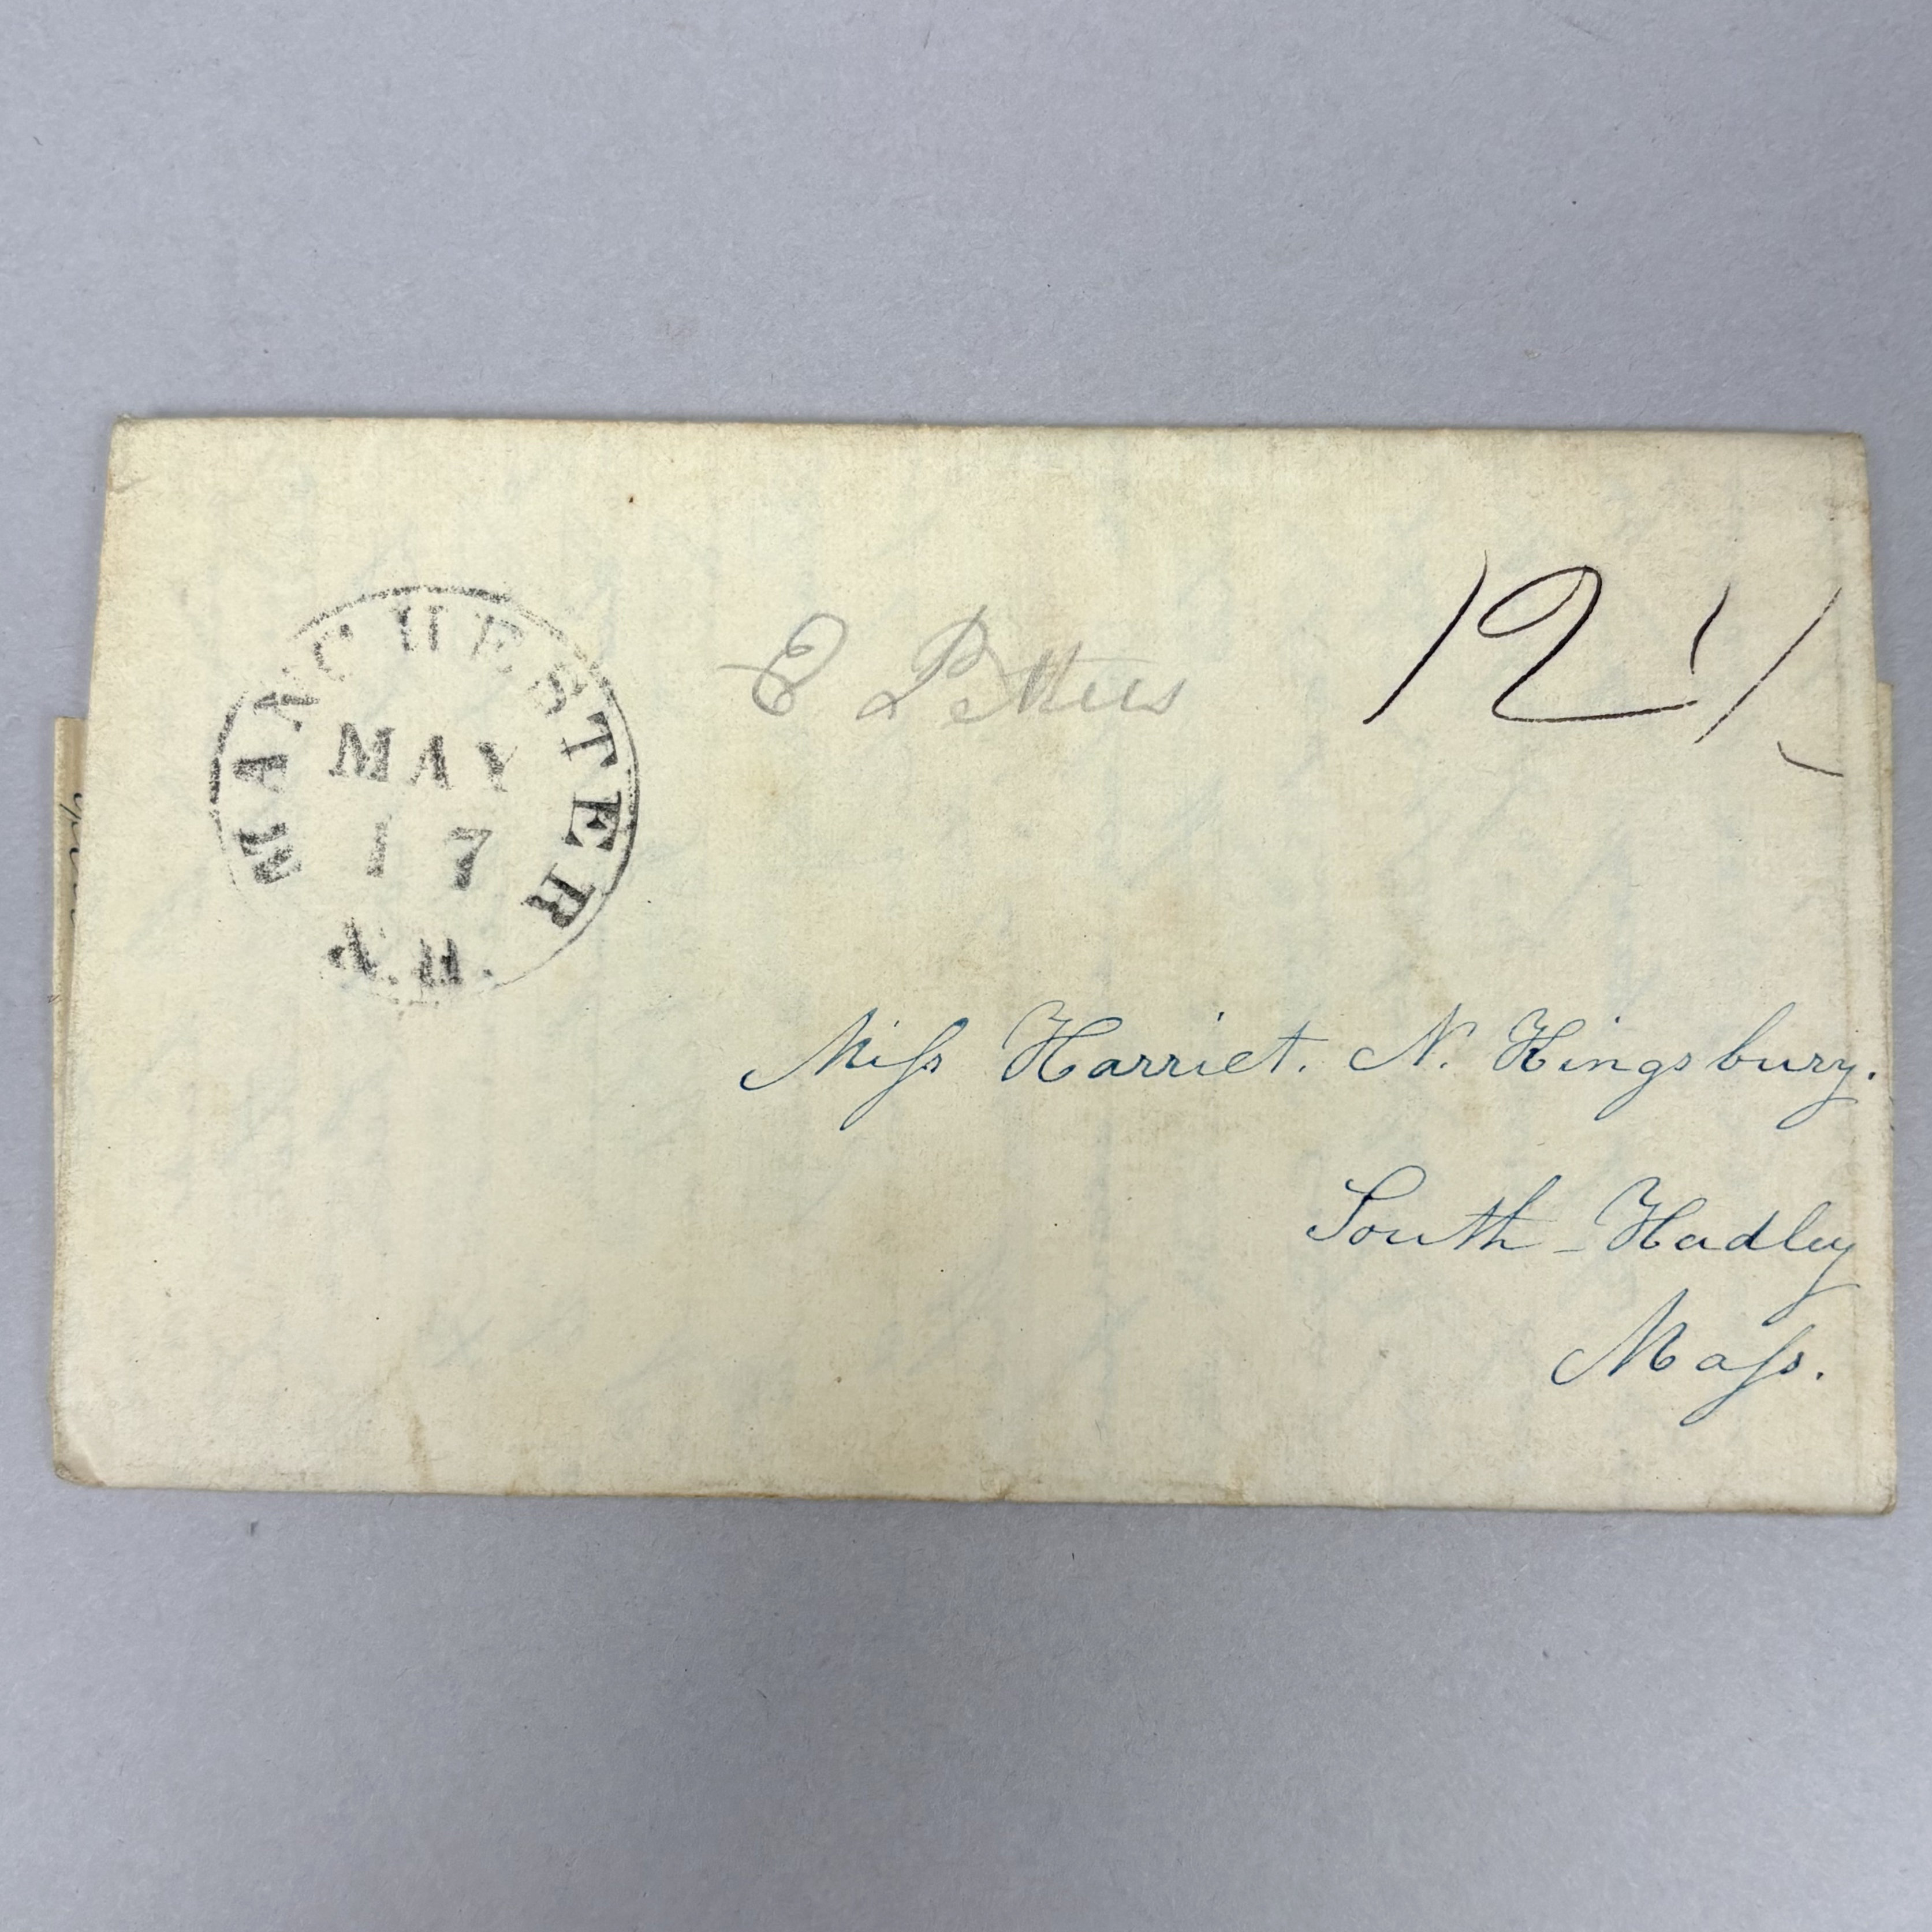 MANCHESTER
MAY
17
N.H.
E
12 1/2
Miſs Harriet. N. Kingsbury.
South-Hadley
Maſs.